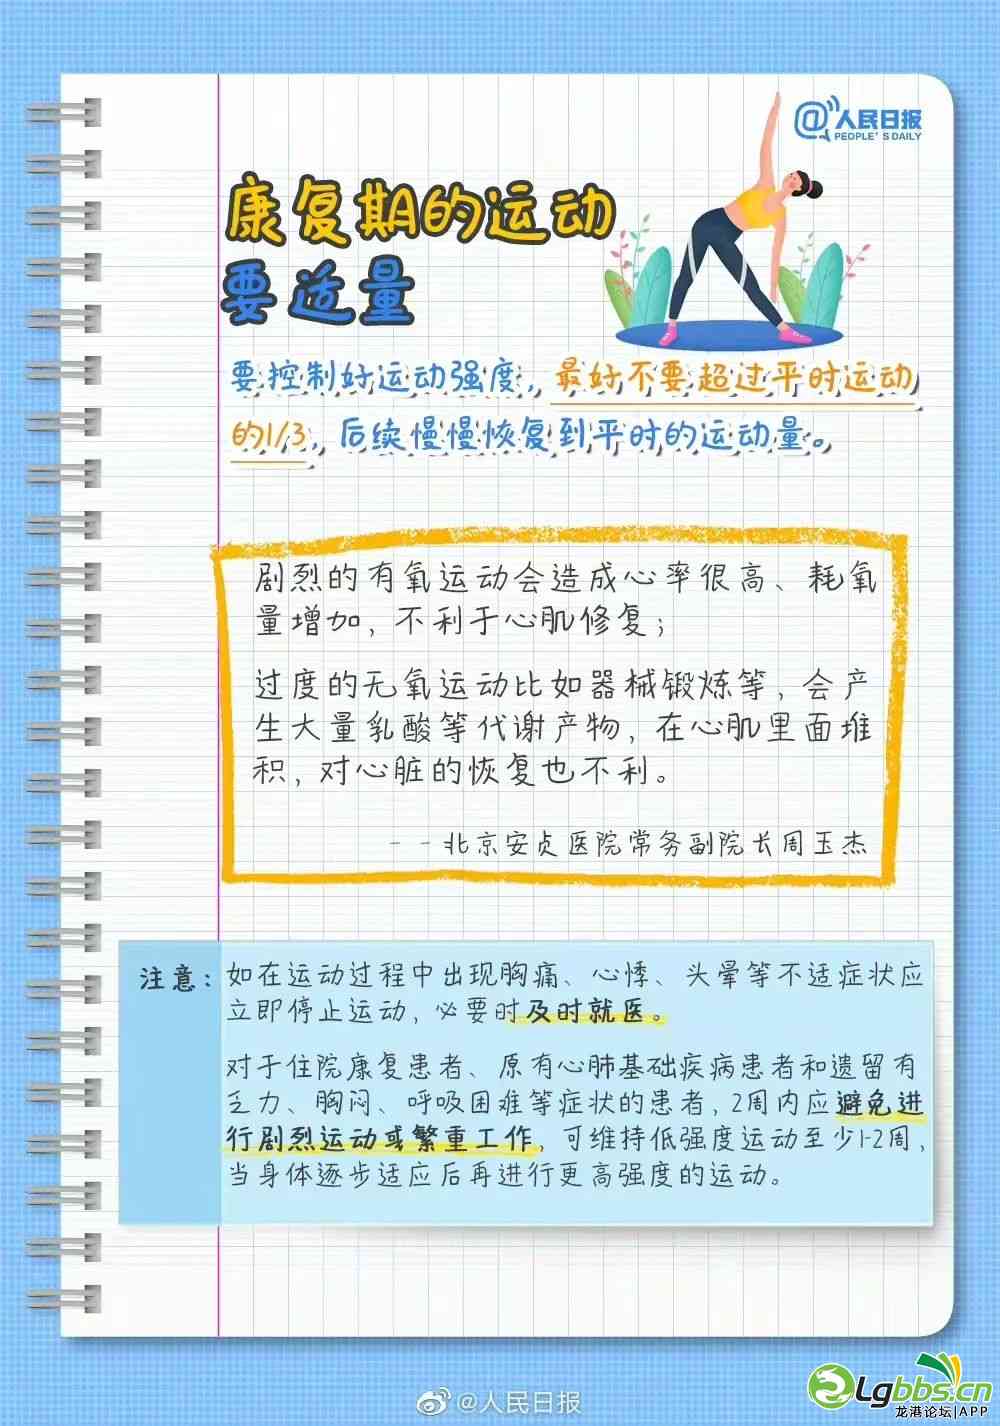 @人民日报
PEOPLE'S DAILY
康复期的运动
要适量
要控制好运动强度，最好不要超过平时运动
的1/3，后续慢慢恢复到平时的运动量。
剧烈的有氧运动会造成心率很高、耗氧
量增加，不利于心肌修复；
过度的无氧运动比如器械锻炼等，会产
生大量乳酸等代谢产物，在心肌里面堆
积，对心脏的恢复也不利。
--北京安贞医院常务副院长周玉杰
注意：如在运动过程中出现胸痛、心悸、头晕等不适症状应
立即停止运动，必要时及时就医。
对于住院康复患者、原有心肺基础疾病患者和遗留有
乏力、胸闷、呼吸困难等症状的患者，2周内应避免进
行剧烈运动或繁重工作，可维持低强度运动至少1-2周，
当身体逐步适应后再进行更高强度的运动。
@人民日报
Lgbbs.cn
龙港论坛|APP